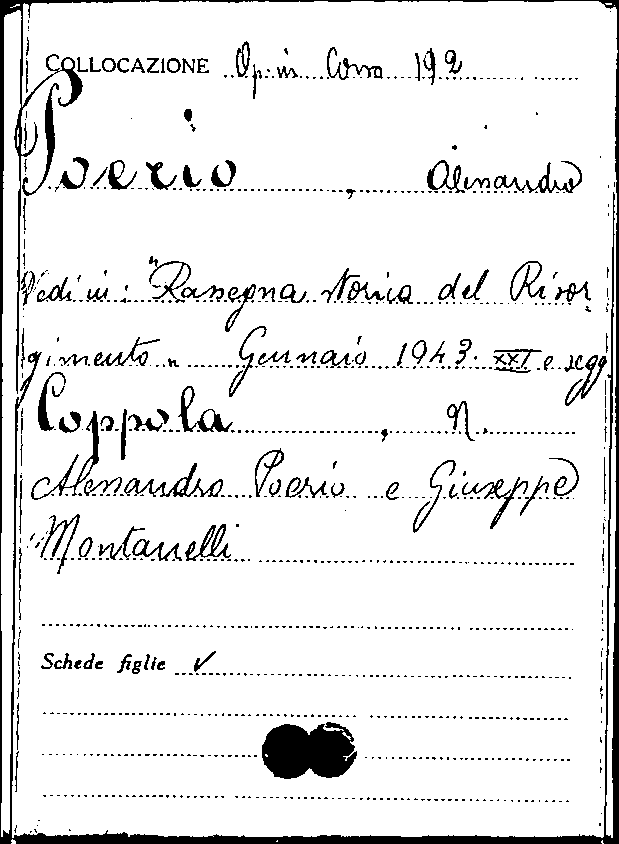 COLLOCAZIONE Op. in Corso 192
Poerio, Alessandro
Vedi in: "Rassegna storica del Risor-
gimento" Gennaio 1943. XXI e segg.
Coppola, N.
Alessandro Poerio e Giuseppe
Montanelli
Schede figlie ✓